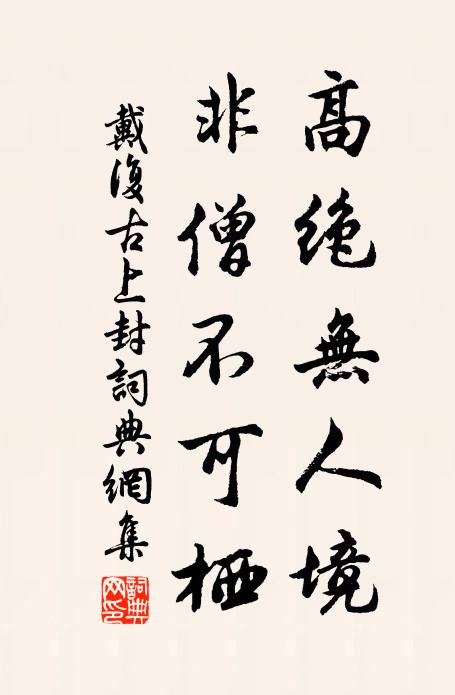 高絶無人境
非僧不可栖
戴復古上封詞典網集
詞典網印